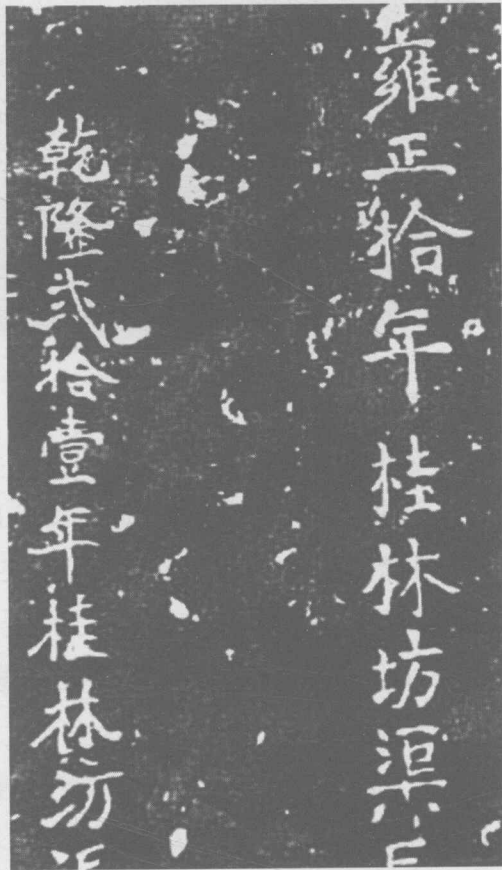 雍正拾年桂林坊渠
乾隆贰拾壹年桂林坊